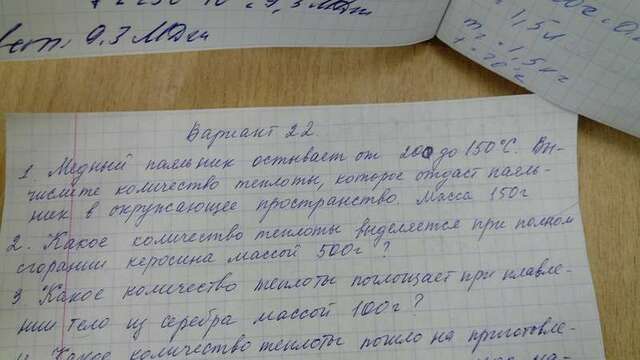 9,3 МДж
9,3 МДж
1,5л
1,5 кг
Вариант 22.
1 Медный паяльник остывает от 200 до 150°С. Вы-
числите количество теплоты, которое отдаст паяль-
ник в окружающее пространство. Масса 150г
2. Какое количество теплоты выделяется при полном
сгорании керосина массой 500г?
3 Какое количество теплоты поглощает при плавле-
нии тело из серебра массой 100г?
Какое количество теплоты пошло на приготовле-